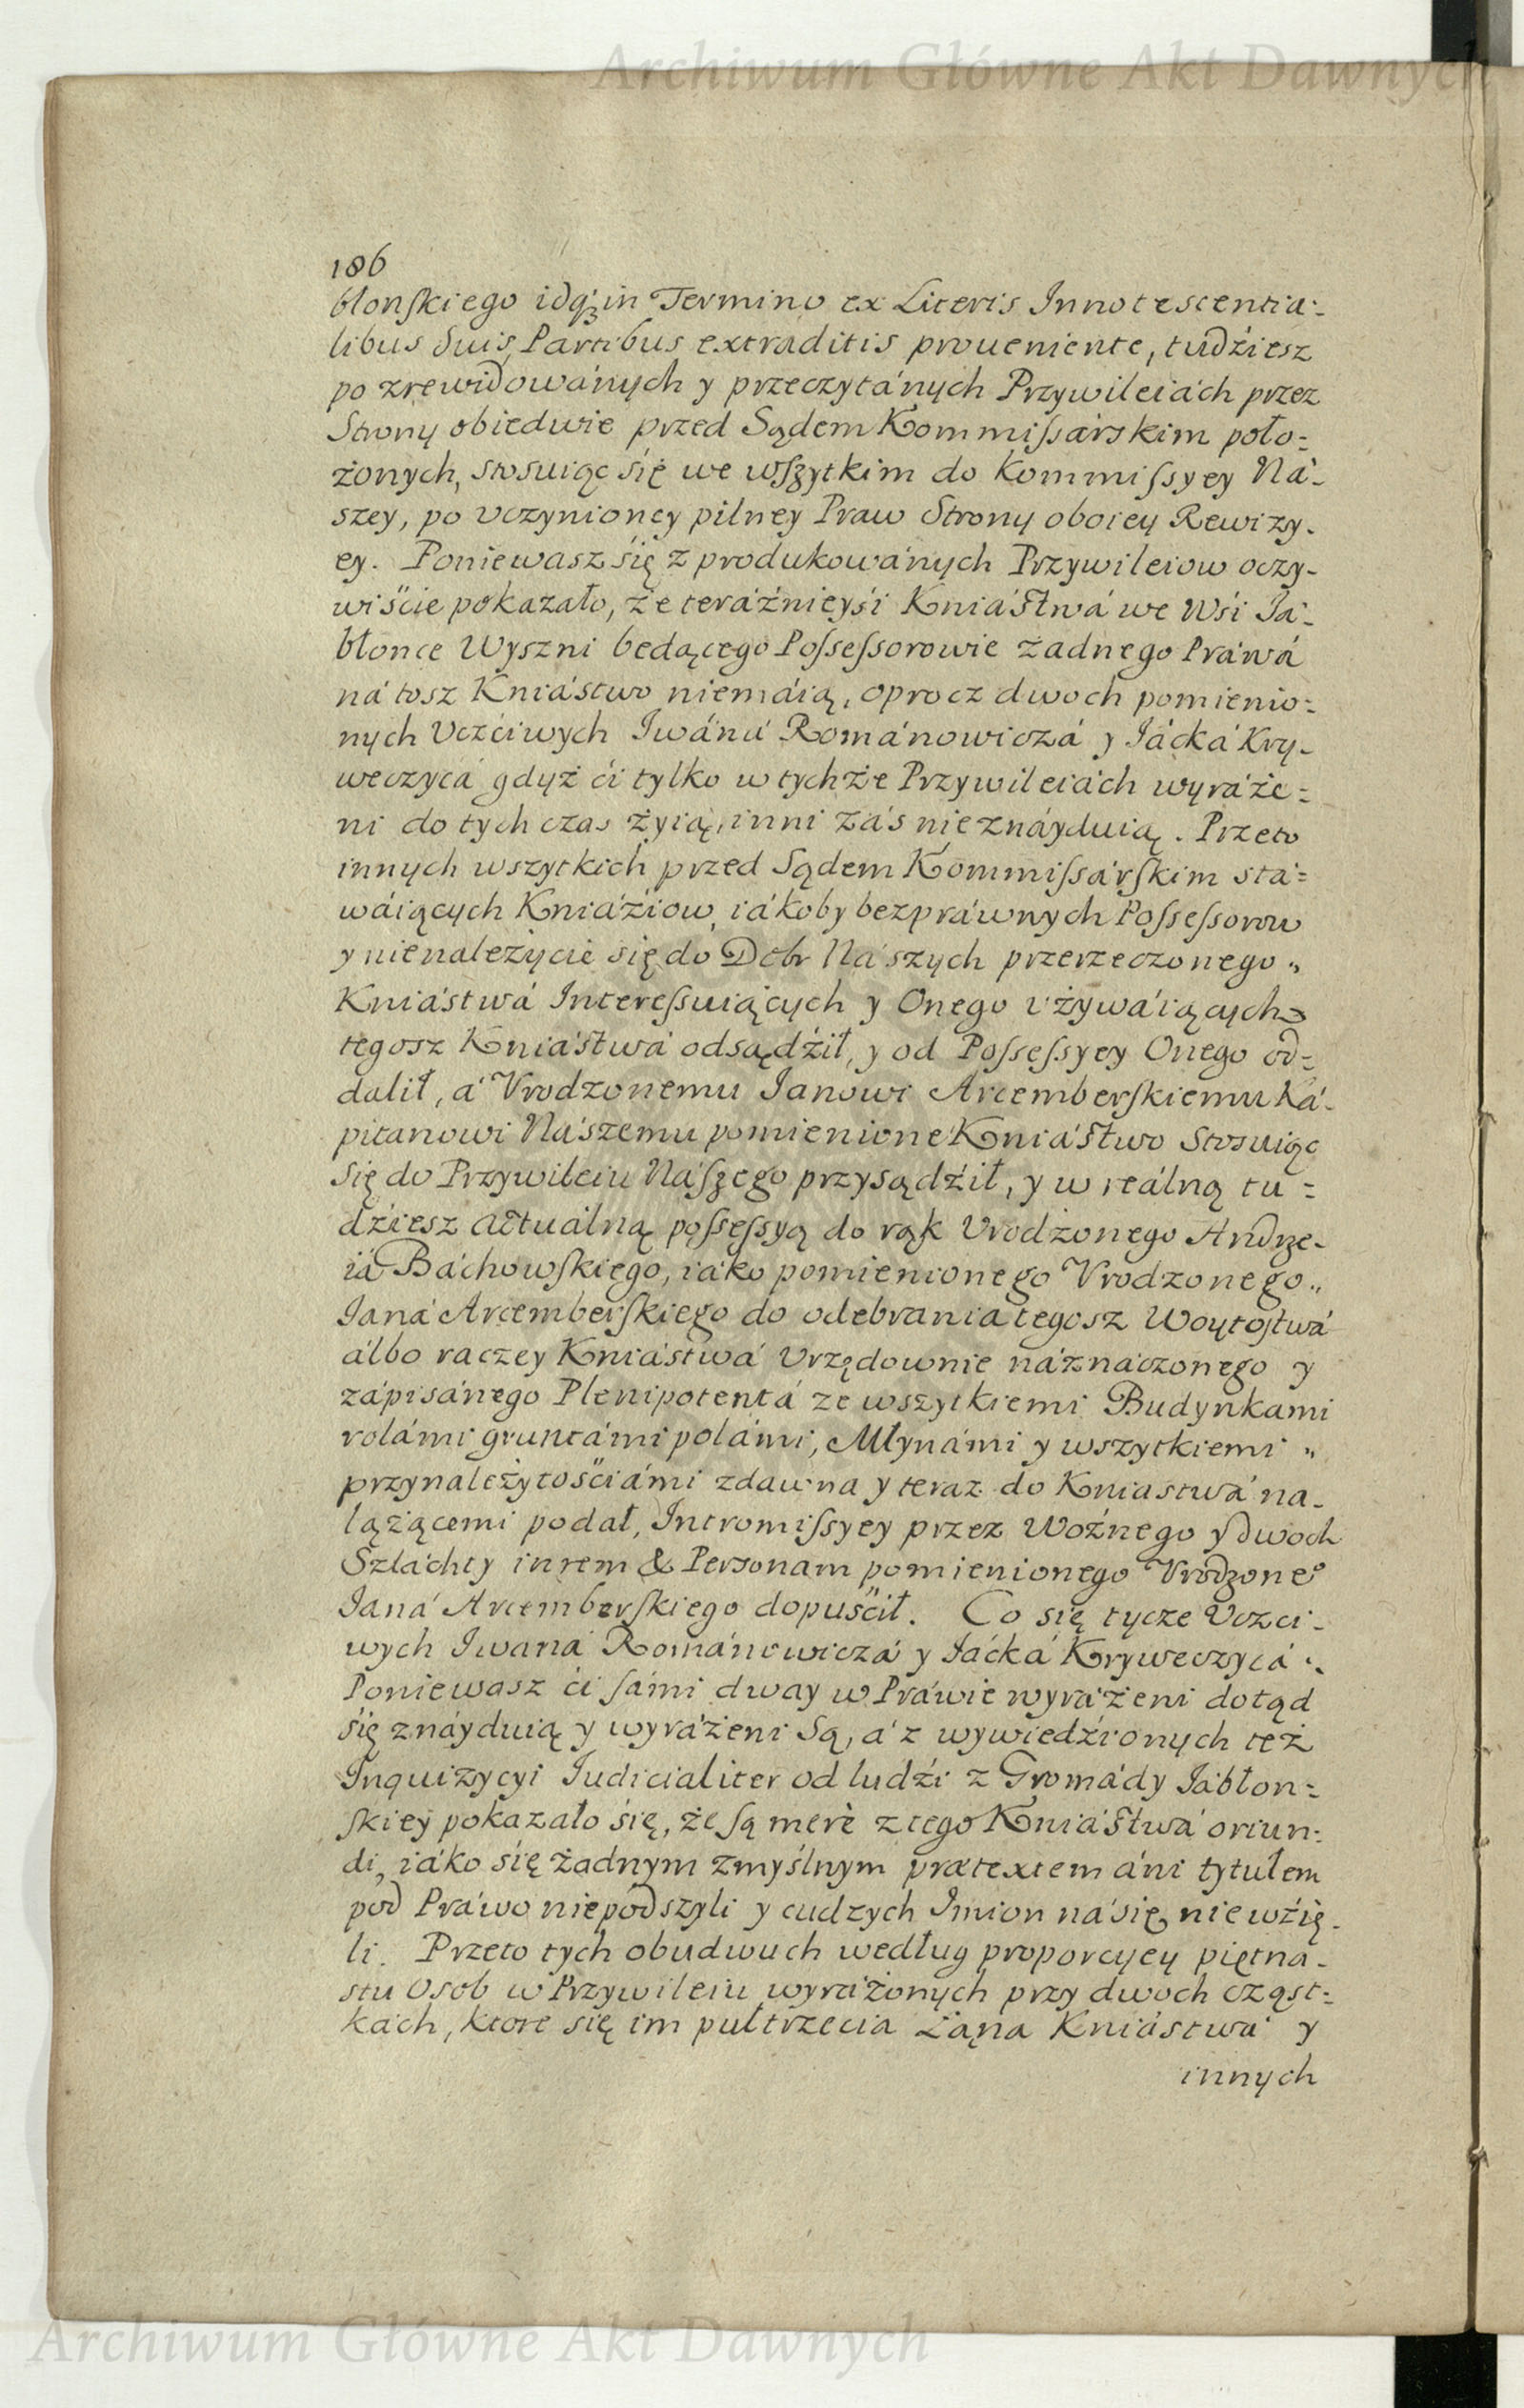 Archiwum Główne Akt Dawnych
186
błonſkiego idq̃ in Termino ex Literis Innotescentia-
libus Suis Partibus extraditis proueniente, tudźiesz
po zrewidowánych y przeczytánych Przywileiách przez
Strony obiedwie przed Sądem Kommiſsárskim poło=
żonych, stosuiąc się we wſzytkim do Kommiſsyey Ná-
szey, po vczynioney pilney Praw Strony oboiey Rewizy-
ey. Poniewasz się z produkowánych Przywileiow oczy-
wiście pokazało, że teráźnieyśi Kniástwá we Wśi Já-
błonce Wyszni będącego Poſseſsorowie żadnego Práwá
ná tosz Kniástwo niemáią, oprocz dwoch pomienio=
nych Vczciwych Iwáná Románowiczá y Iácká Kry-
weczycá gdyż ći tylko w tychże Przywileiách wyráże=
ni do tych czas żyią, inni záś nie znáyduią. Przeto
innych wszytkich przed Sądem Kommiſsárſkim stá=
wáiących Kniáźiow, iákoby bezpráwnych Poſseſsorow
y nienależycie się do Dobr Nászych przerzeczonego „
Kniástwá Intereſsuiących y Onego vżywáiących
tegosz Kniástwá odsądźił, y od Poſseſsyey Onego od=
dalił, á Vrodzonemu Janowi Arcemberſkiemu Ká-
pitanowi Nászemu pomienione Kniástwo Stosuiąc
się do Przywileiu Náſzego przysądźił, y w reálną tu=
dźiesz actuálną poſseſsyą do rąk Vrodzonego Andrze-
iá Báchowſkiego, iáko pomienionego Vrodzonego „
Janá Arcemberſkiego do odebrania tegosz Woytoſtwá
álbo raczey Kniástwá Vrzędownie náznáczonego y
zápisánego Plenipotentá ze wszytkiemi Budynkami
rolámi gruntámi polámi, Młynámi y wszytkiemi „
przynależytościámi zdawna y teraz do Kniastwá na-
lążącemi podał, Intromiſsyey przez Woźnego y dwoch
Szláchty in rem & Personam pomienionego Vrodzone͠g
Janá Arcemberſkiego dopuścił. Co się tycze Vczci-
wych Iwaná Románowiczá y Iácká Kryweczycá „
Poniewasz ći ſámi dway w Práwie wyráżeni dotąd
się znáyduią y wyráżeni Są, á z wywiedźionych też
Inquizycyi Iudicialiter od ludźi z Gromády Jábłon=
ſkiey pokazało się, że ſą merè z tego Kniástwá oriun=
di, iáko się żadnym zmyślnym prætextem áni tytułem
pod Práwo niepodszyli y cudzych Imion ná się nie wźię-
li. Przeto tych obudwuch według proporcyey piętna-
stu Osob w Przywileiu wyráżonych przy dwoch cząst=
kách, ktore się im pułtrzecia Łąna Kniástwá y
innych
Archiwum Główne Akt Dawnych